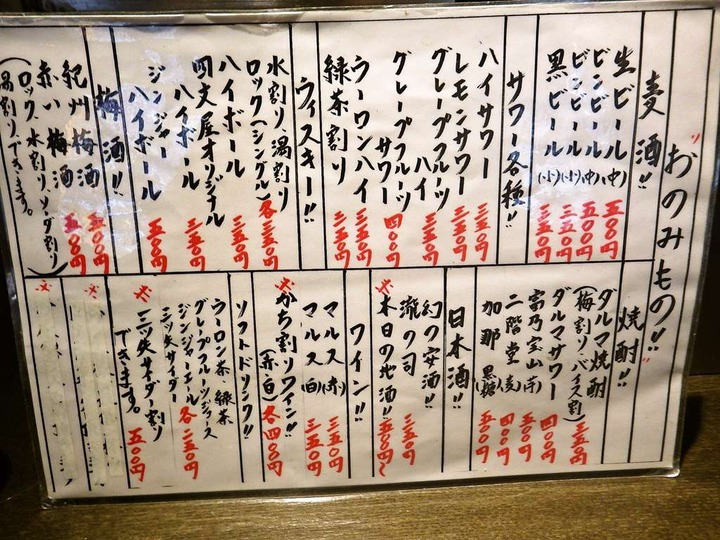 おのみもの!!
麦酒!!
生ビール(中) 五〇〇円
ビンビール(中) 五〇〇円
ビンビール(小) 三五〇円
黒ビール(小) 三五〇円
サワー各種!!
ハイサワー 三五〇円
レモンサワー 三五〇円
グレープフルーツ
ハイ 三五〇円
グレープフルーツ
サワー 四〇〇円
ウーロンハイ 三五〇円
緑茶割り 三五〇円
ウィスキー!!
水割り、湯割り
ロック(シングル) 各三五〇円
ハイボール 三五〇円
四文屋オリジナル
ハイボール 三五〇円
ジンジャー
ハイボール 五〇〇円
梅酒!!
紀州梅酒 五〇〇円
赤い梅酒 五〇〇円
(ロック、水割り、ソーダ割り
湯割りできます。)
焼酎!!
ダルマ焼酎
(梅割り、バイス割) 三五〇円
ダルマサワー 四〇〇円
富乃宝山(芋) 五〇〇円
二階堂(麦) 四〇〇円
加那(黒糖) 五〇〇円
日本酒!!
幻の安酒!!
瀧の司 三五〇円
本日の地酒!! 五〇〇円〜
ワイン!!
マルス(赤) 三五〇円
マルス(白) 三五〇円
かち割りワイン!!
(赤・白) 各四〇〇円
ソフトドリンク!!
ウーロン茶 緑茶
グレープフルーツジュース
ジンジャーエール 各二五〇円
三ツ矢サイダー
三ツ矢サイダー割り
できます。 五〇〇円